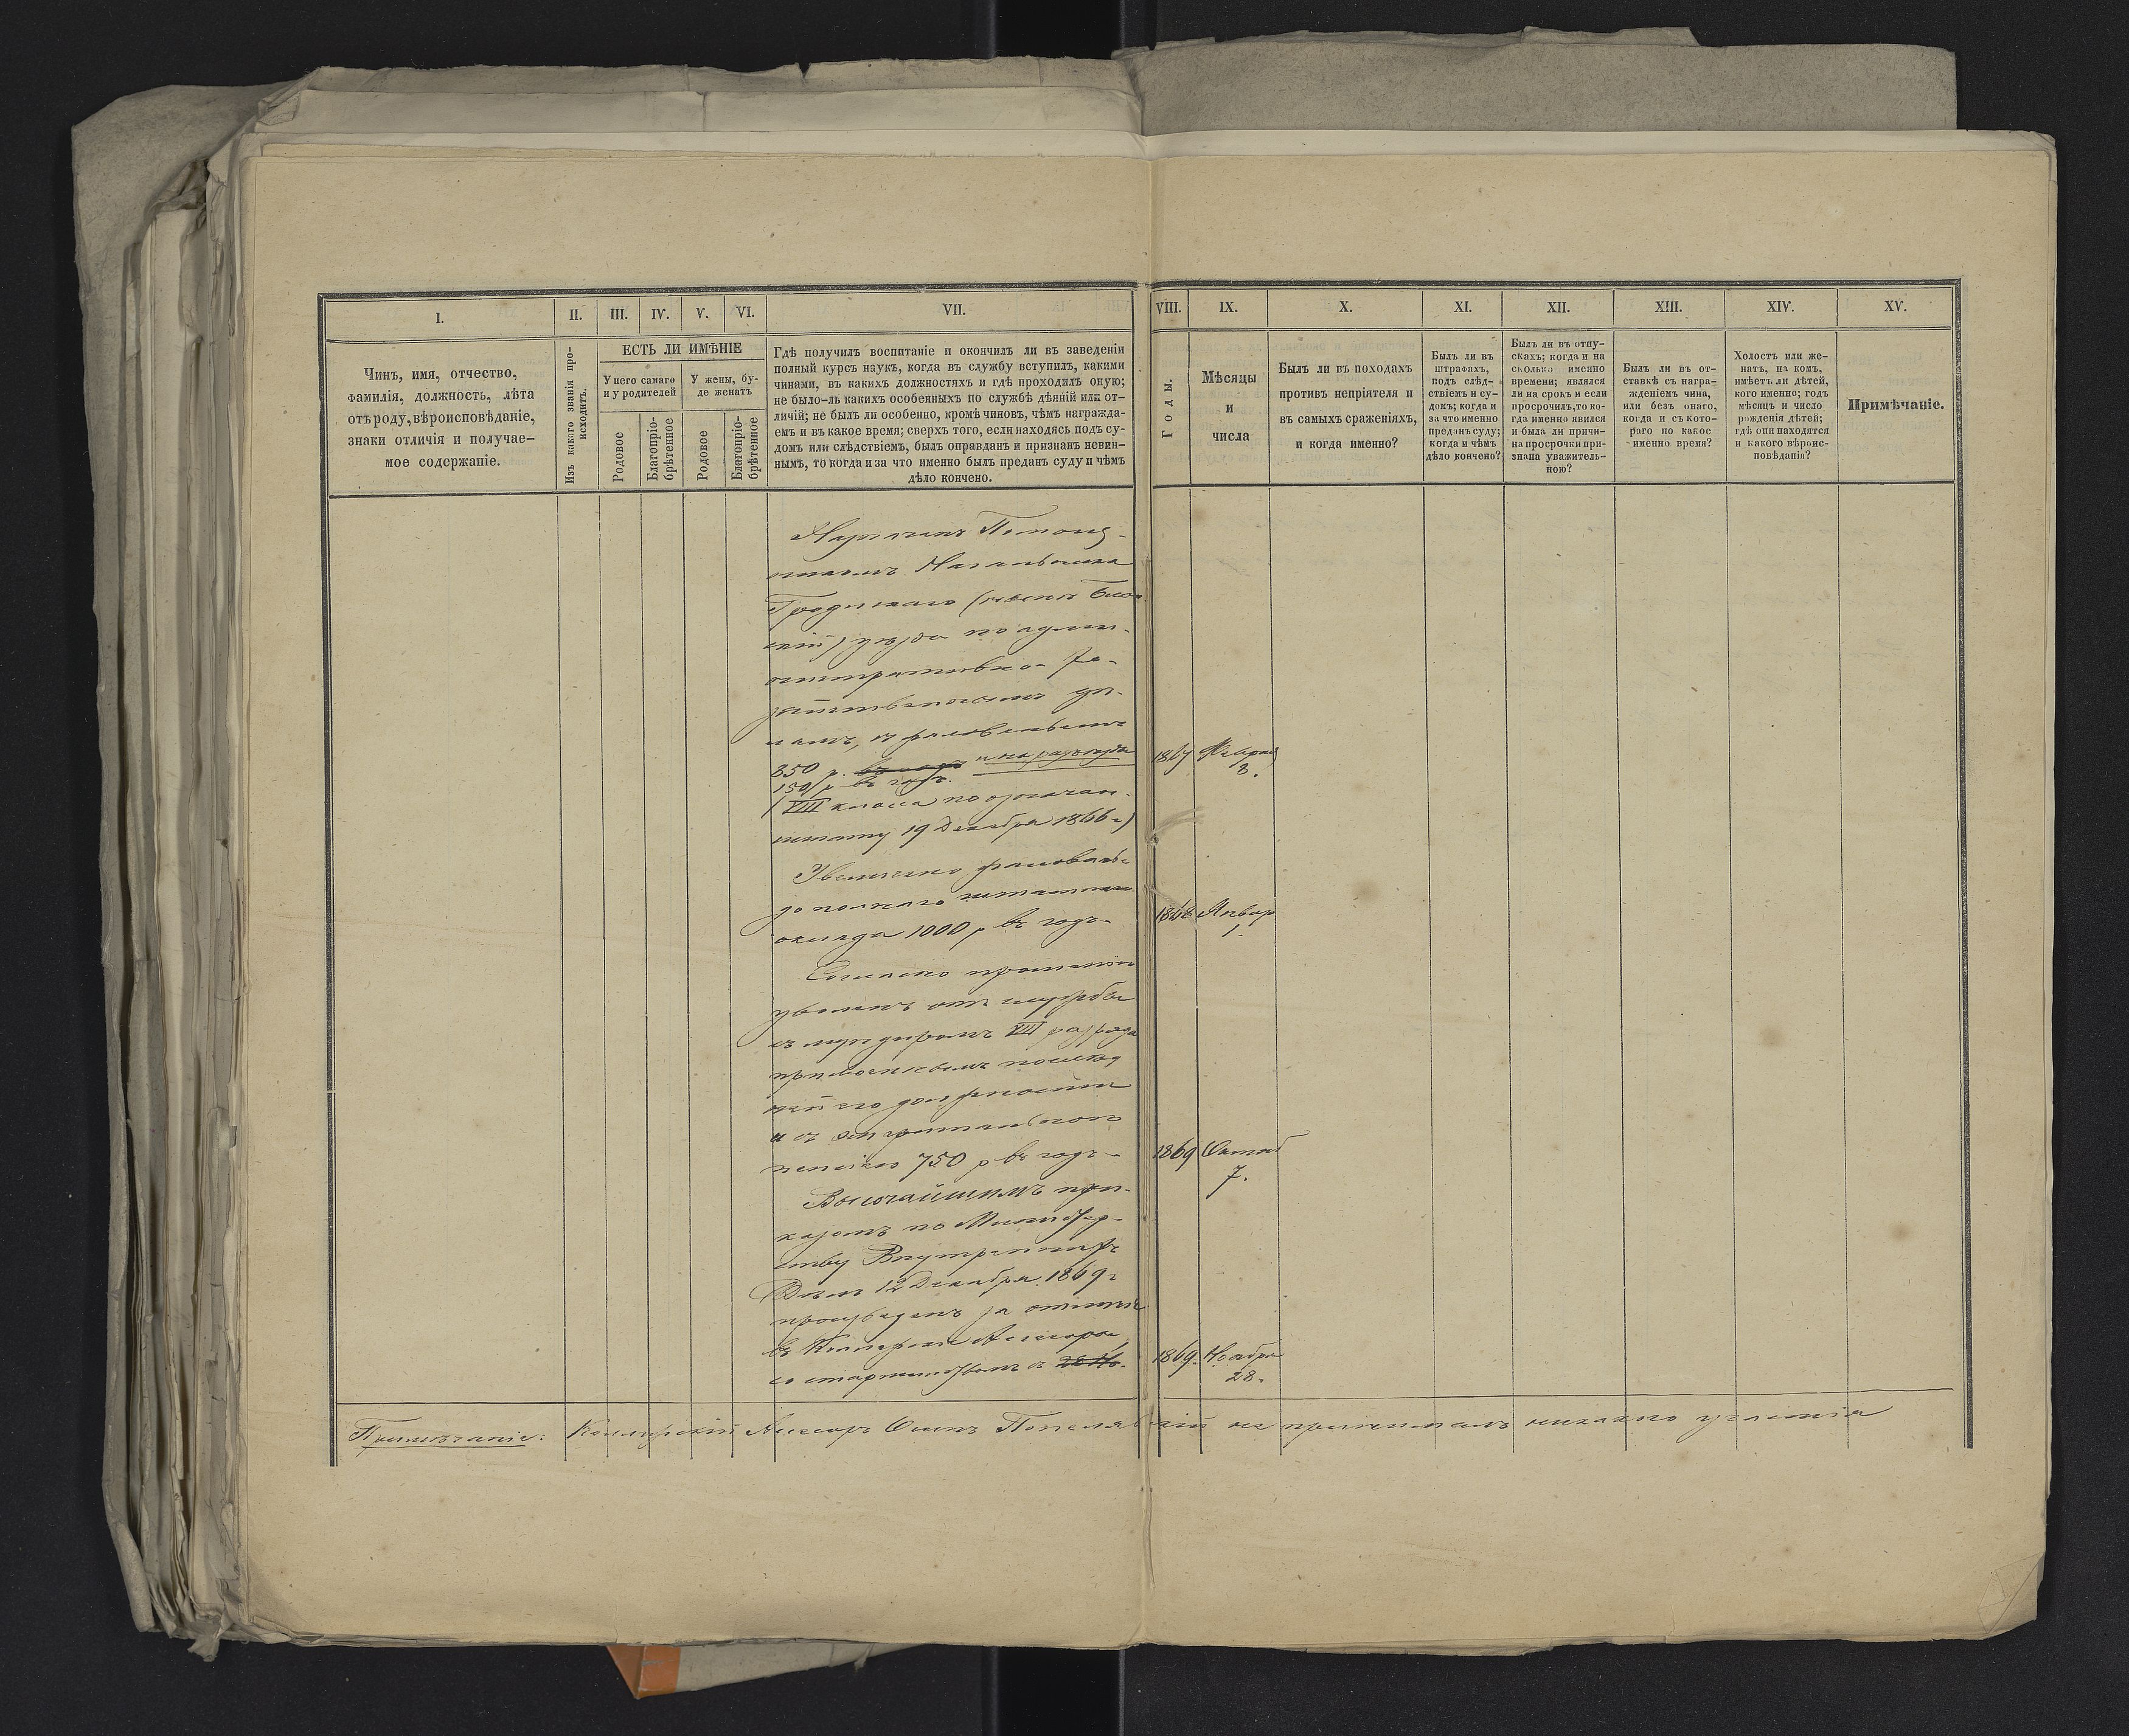 I. II. III. IV. V. VI. VII. VIII. IX. X. XI. XII. XIII. XIV. XV.
Чинъ, имя, отчество,
фамилія, должность, лѣта
отъ роду, вѣроисповѣданіе,
знаки отличія и получае-
мое содержаніе.
Изъ какого званія про-
исходитъ.
ЕСТЬ ЛИ ИМѢНІЕ
У него самаго
и у родителей
У жены, бу-
де женатъ
Родовое
Благопріо-
брѣтенное
Родовое
Благопріо-
брѣтенное
Гдѣ получилъ воспитаніе и окончилъ ли въ заведеніи
полный курсъ наукъ, когда въ службу вступилъ, какими
чинами, въ какихъ должностяхъ и гдѣ проходилъ оную;
не было-ль какихъ особенныхъ по службѣ дѣяній или от-
личій; не былъ ли особенно, кромѣ чиновъ, чѣмъ награжда-
емъ и въ какое время; сверхъ того, если находясь подъ су-
домъ или слѣдствіемъ, былъ оправданъ и признанъ невин-
нымъ, то когда и за что именно былъ преданъ суду и чѣмъ
дѣло кончено.
Годы.
Мѣсяцы
и
числа
Былъ ли въ походахъ
противъ непріятеля и
въ самыхъ сраженіяхъ,
и когда именно?
Былъ ли въ
штрафахъ,
подъ слѣд-
ствіемъ и су-
домъ; когда и
за что именно
преданъ суду;
когда и чѣмъ
дѣло кончено?
Былъ ли въ отпу-
скахъ; когда и на
сколько именно
времени; являлся
ли на срокъ и если
просрочилъ, то ко-
гда именно явился
и была ли причи-
на просрочки при-
знана уважитель-
ною?
Былъ ли въ от-
ставкѣ съ награ-
жденіемъ чина,
или безъ онаго,
когда и съ кото-
раго по какое
именно время?
Холостъ или же-
натъ, на комъ,
имѣетъ ли дѣтей,
кого именно; годъ
мѣсяцъ и число
рожденія дѣтей;
гдѣ они находятся
и какого вѣроис-
повѣданія?
Примѣчаніе.
Помощ-
никомъ Начальника
уѣзда по админи-
стративно-хо-
зяйственнымъ дѣ-
ламъ, съ жалованьемъ
850 р. въ годъ и на разъѣзды 1867 Февраля
150 р въ годъ. 8.
(VIII класса по
штату 19 Декабря 1866 г)
Увеличено жалованье
до полнаго штатнаго 1868 Январ
оклада 1000 р въ годъ 1.
Согласно прошенію
уволенъ отъ службы
съ мундиромъ VIII разряда
присвоеннымъ послѣд
ней его должности
и съ эмеритальною
пенсіею 750 р въ годъ 1869 Октяб
7.
Высочайшимъ при-
казомъ по Министер-
ству Внутреннихъ
Дѣлъ 12 Декабря 1869 г
произведенъ за отличіе
въ Коллежскіе Ассесоры
со старшинствомъ съ 28 Но- 1869. Ноября
28.
Примѣчаніе: Коллежскій Ассесоръ Осипъ не принималъ никакого участія